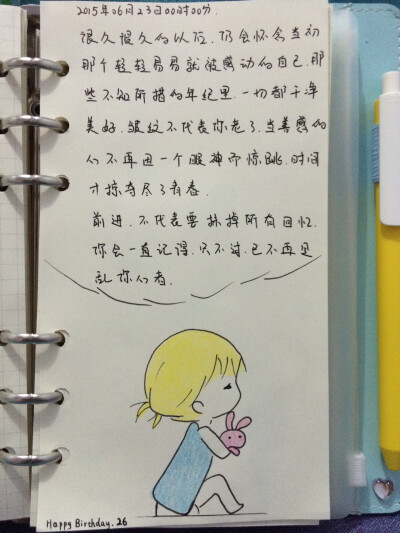 2015年06月23日00时00分.
很久很久的以后,仍会怀念当初
那个轻轻易易就被感动的自己.那
些不知所措的年纪里.一切都干净
美好.皱纹不代表你老了.当善感的
人不再因一个眼神而惊跳.时间
才掠夺尽了青春.
前进.不代表要抹掉所有回忆.
你会一直记得.只不过.已不再是
乱你心者.
Happy Birthday. 26